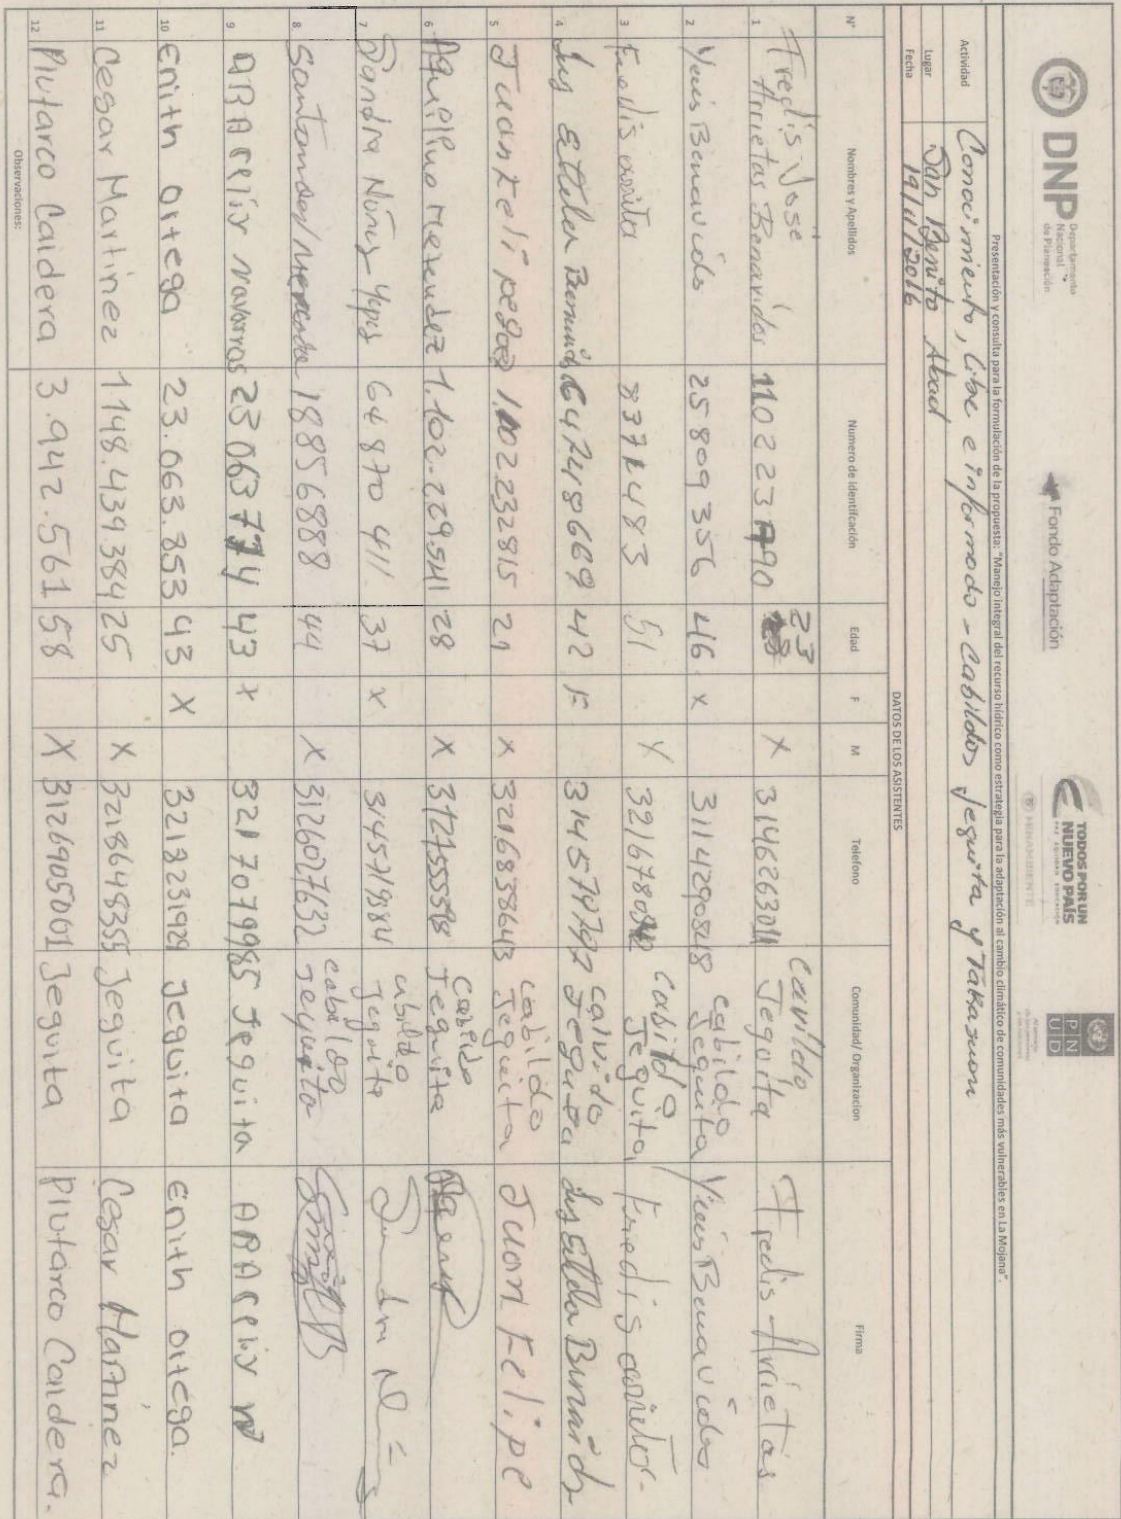 DNP Departamento
Nacional
de Planeación
Fondo Adaptación
TODOS POR UN
NUEVO PAÍS
PAZ EQUIDAD EDUCACIÓN
MINAMBIENTE
PNUD
Presentación y consulta para la formulación de la propuesta: "Manejo integral del recurso hídrico como estrategia para la adaptación al cambio climático de comunidades más vulnerables en La Mojana".
Actividad Conocimiento, libre e informado - Cabildos Jeguita y
Lugar San Benito Abad
Fecha 19/11/2016
DATOS DE LOS ASISTENTES
N° Nombres y Apellidos Numero de Identifcación Edad F M Telefono Comunidad/ Organizacion Firma
1 Fredis José Arrietas Benavides 23 X Cavildo Jeguita Fredis Arrietas
2 Benavides 25809356 46 x 3114290848 cabildo Jeguita Benavides
3 Fredis 51 X Cabildo Jeguita Fredis
4 Luz 42 F calvido
5 Juan Felipe 1.002232815 X 3216835864 cabildo Jeguita Juan Felipe
6 1.102.229541 28 X Cabildo Jeguita
7 Sandra Núñez Yepes 64870411 37 x 3145719384 cabildo Jeguita Sandra N
8 18856888 44 X 3126027632
9 ARAcelis navarros 23063774 43 x 3217079985 Jeguita ARAcelis N
10 Enith Ortega 23.063.853 43 X 3218231929 Jeguita Enith Ortega.
11 Cesar Martinez 1148.439.384 25 X 3218648355 Jeguita Cesar Martinez
12 Plutarco Caldera 3.942.561 58 X 3126905061 Jeguita Plutarco Caldera.
Observaciones: